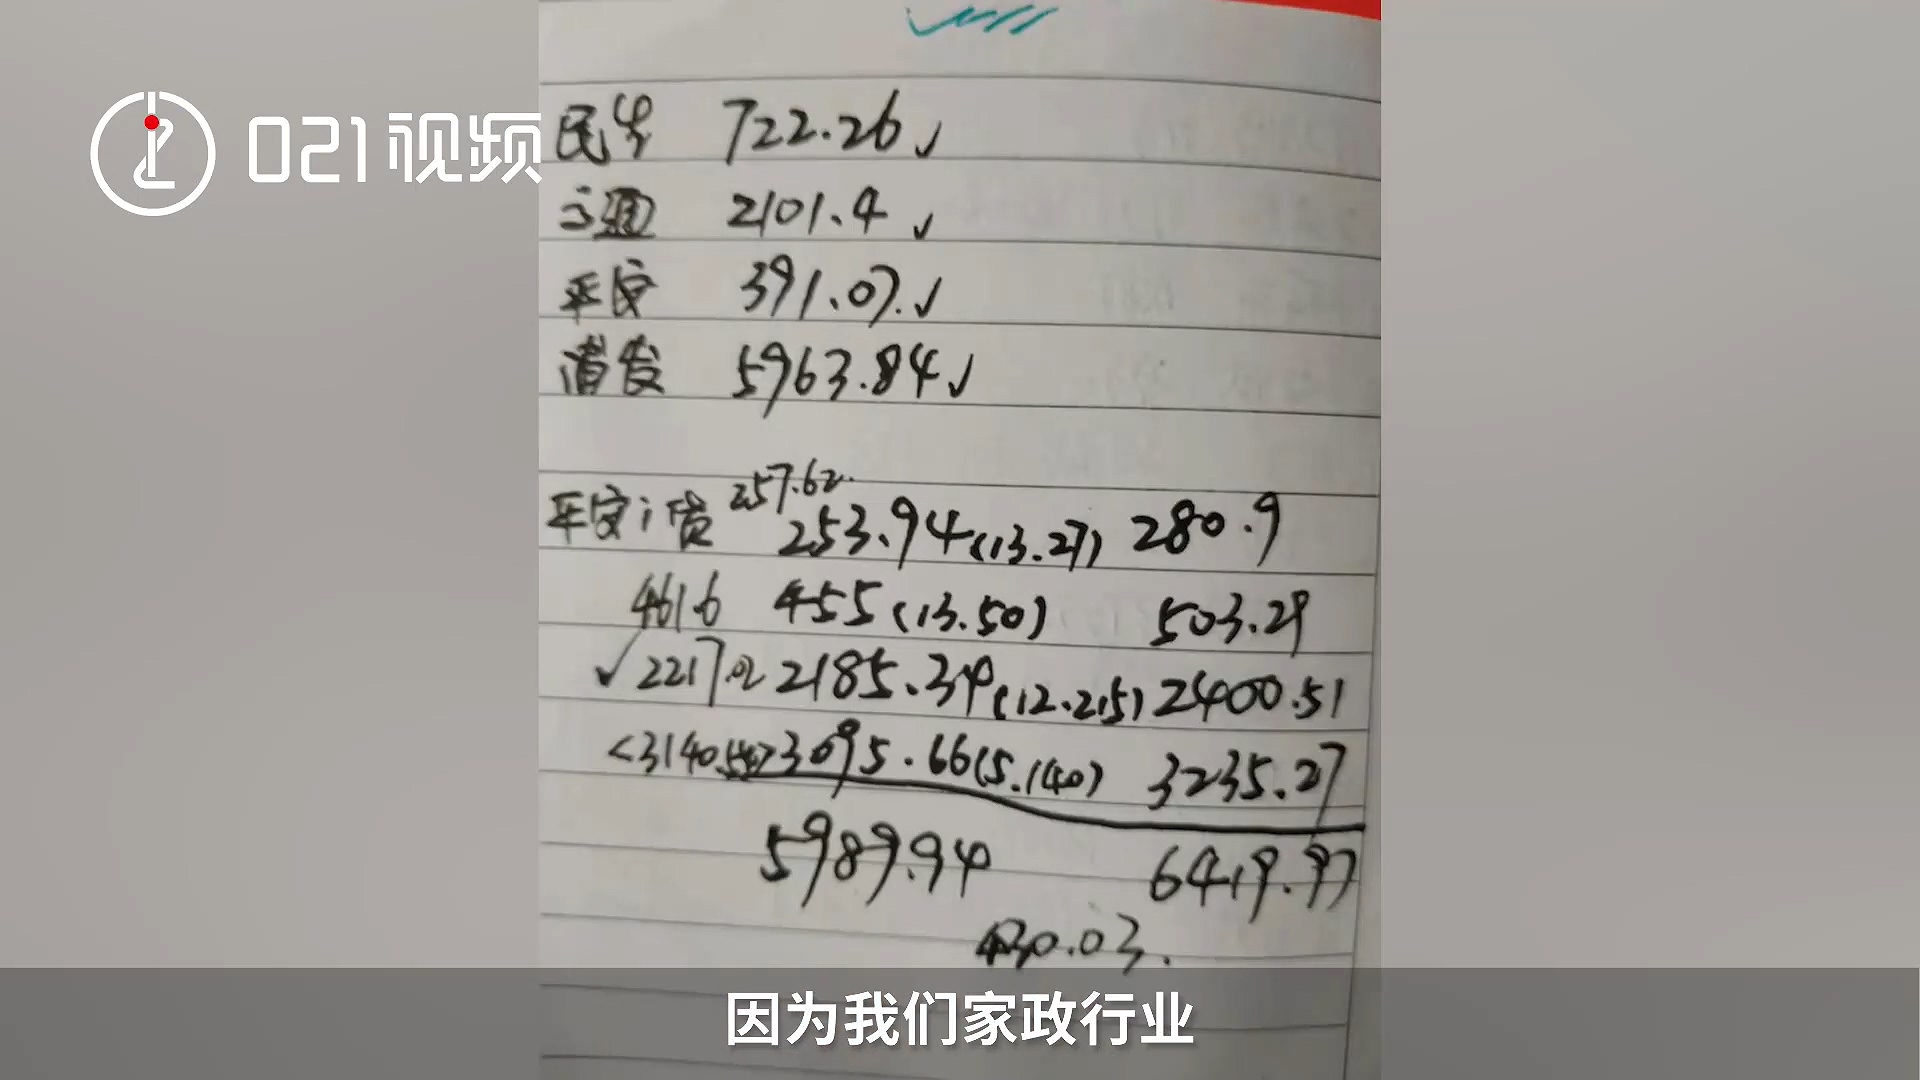 021视频
民生 722.26✓
交通 2101.4 ✓
平安 391.07.✓
浦发 5963.84✓
257.62.
平安i贷 253.94(13.27) 280.9
461.6 455(13.50) 503.29
✓2217.02 2185.34(12.215) 2400.51
<3140.56>3095.66(5.140) 3235.27
5989.94 6419.97
430.03.
因为我们家政行业